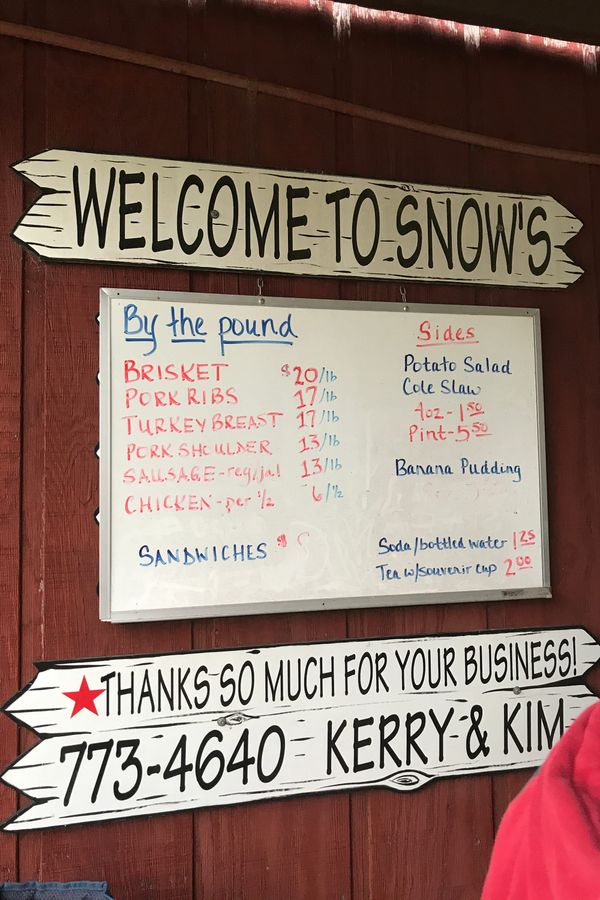 WELCOME TO SNOW'S
By the pound
BRISKET $20/lb
PORK RIBS 17/lb
TURKEY BREAST 17/lb
PORK SHOULDER 13/lb
SAUSAGE-reg/jal 13/lb
CHICKEN-per 1/2 6/½
SANDWICHES $
Sides
Potato Salad
Cole Slaw
4oz-1 50
Pint-5 50
Banana Pudding
Soda/bottled water 1 25
Tea w/souvenir cup 2 00
THANKS SO MUCH FOR YOUR BUSINESS!
773-4640 - KERRY & KIM